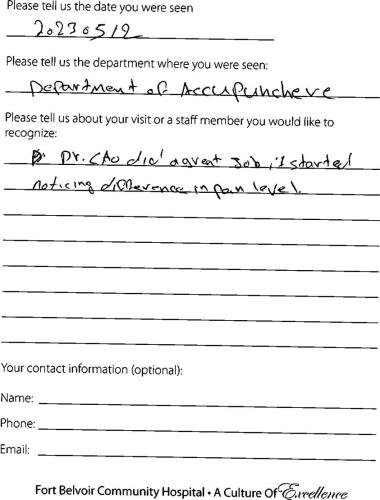 Please tell us the date you were seen
20230512
Please tell us the department where you were seen:
Department of Accupuncheve
Please tell us about your visit or a staff member you would like to
recognize:
Dr. CAO did a great Job, I started
noticing difference in pain level.
Your contact information (optional):
Name:
Phone:
Email:
Fort Belvoir Community Hospital • A Culture Of Excellence